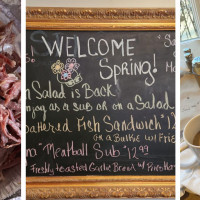 WELCOME
Spring!
Salad is Back
enjoy as a sub or on a Salad
Battered Fish Sandwich" 12
(on a Bulkie w/ Fries
"Meatball Sub" 12.99
Freshly toasted Garlic Bread w/